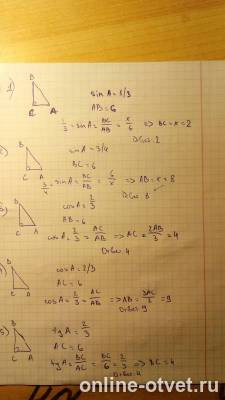 1)
B
C A
sin A = 1/3
AB = 6
1/3 = sin A = BC/AB = x/6 => BC = x = 2
Ответ. 2
2)
B
C A
sin A = 3/4
BC = 6
3/4 = sin A = BC/AB = 6/x => AB = x = 8
Ответ 8
B
C A
cos A = 2/3
AB = 6
cos A = 2/3 = AC/AB => AC = 2AB/3 = 4
Ответ. 4
B
C A
cos A = 2/3
AC = 6
cos A = 2/3 = AC/AB => AB = 3AC/2 = 9
Ответ. 9
5)
B
C A
tg A = 2/3
AC = 6
tg A = BC/AC = BC/6 = 2/3 => BC = 4
Ответ. 4
online-otvet.ru